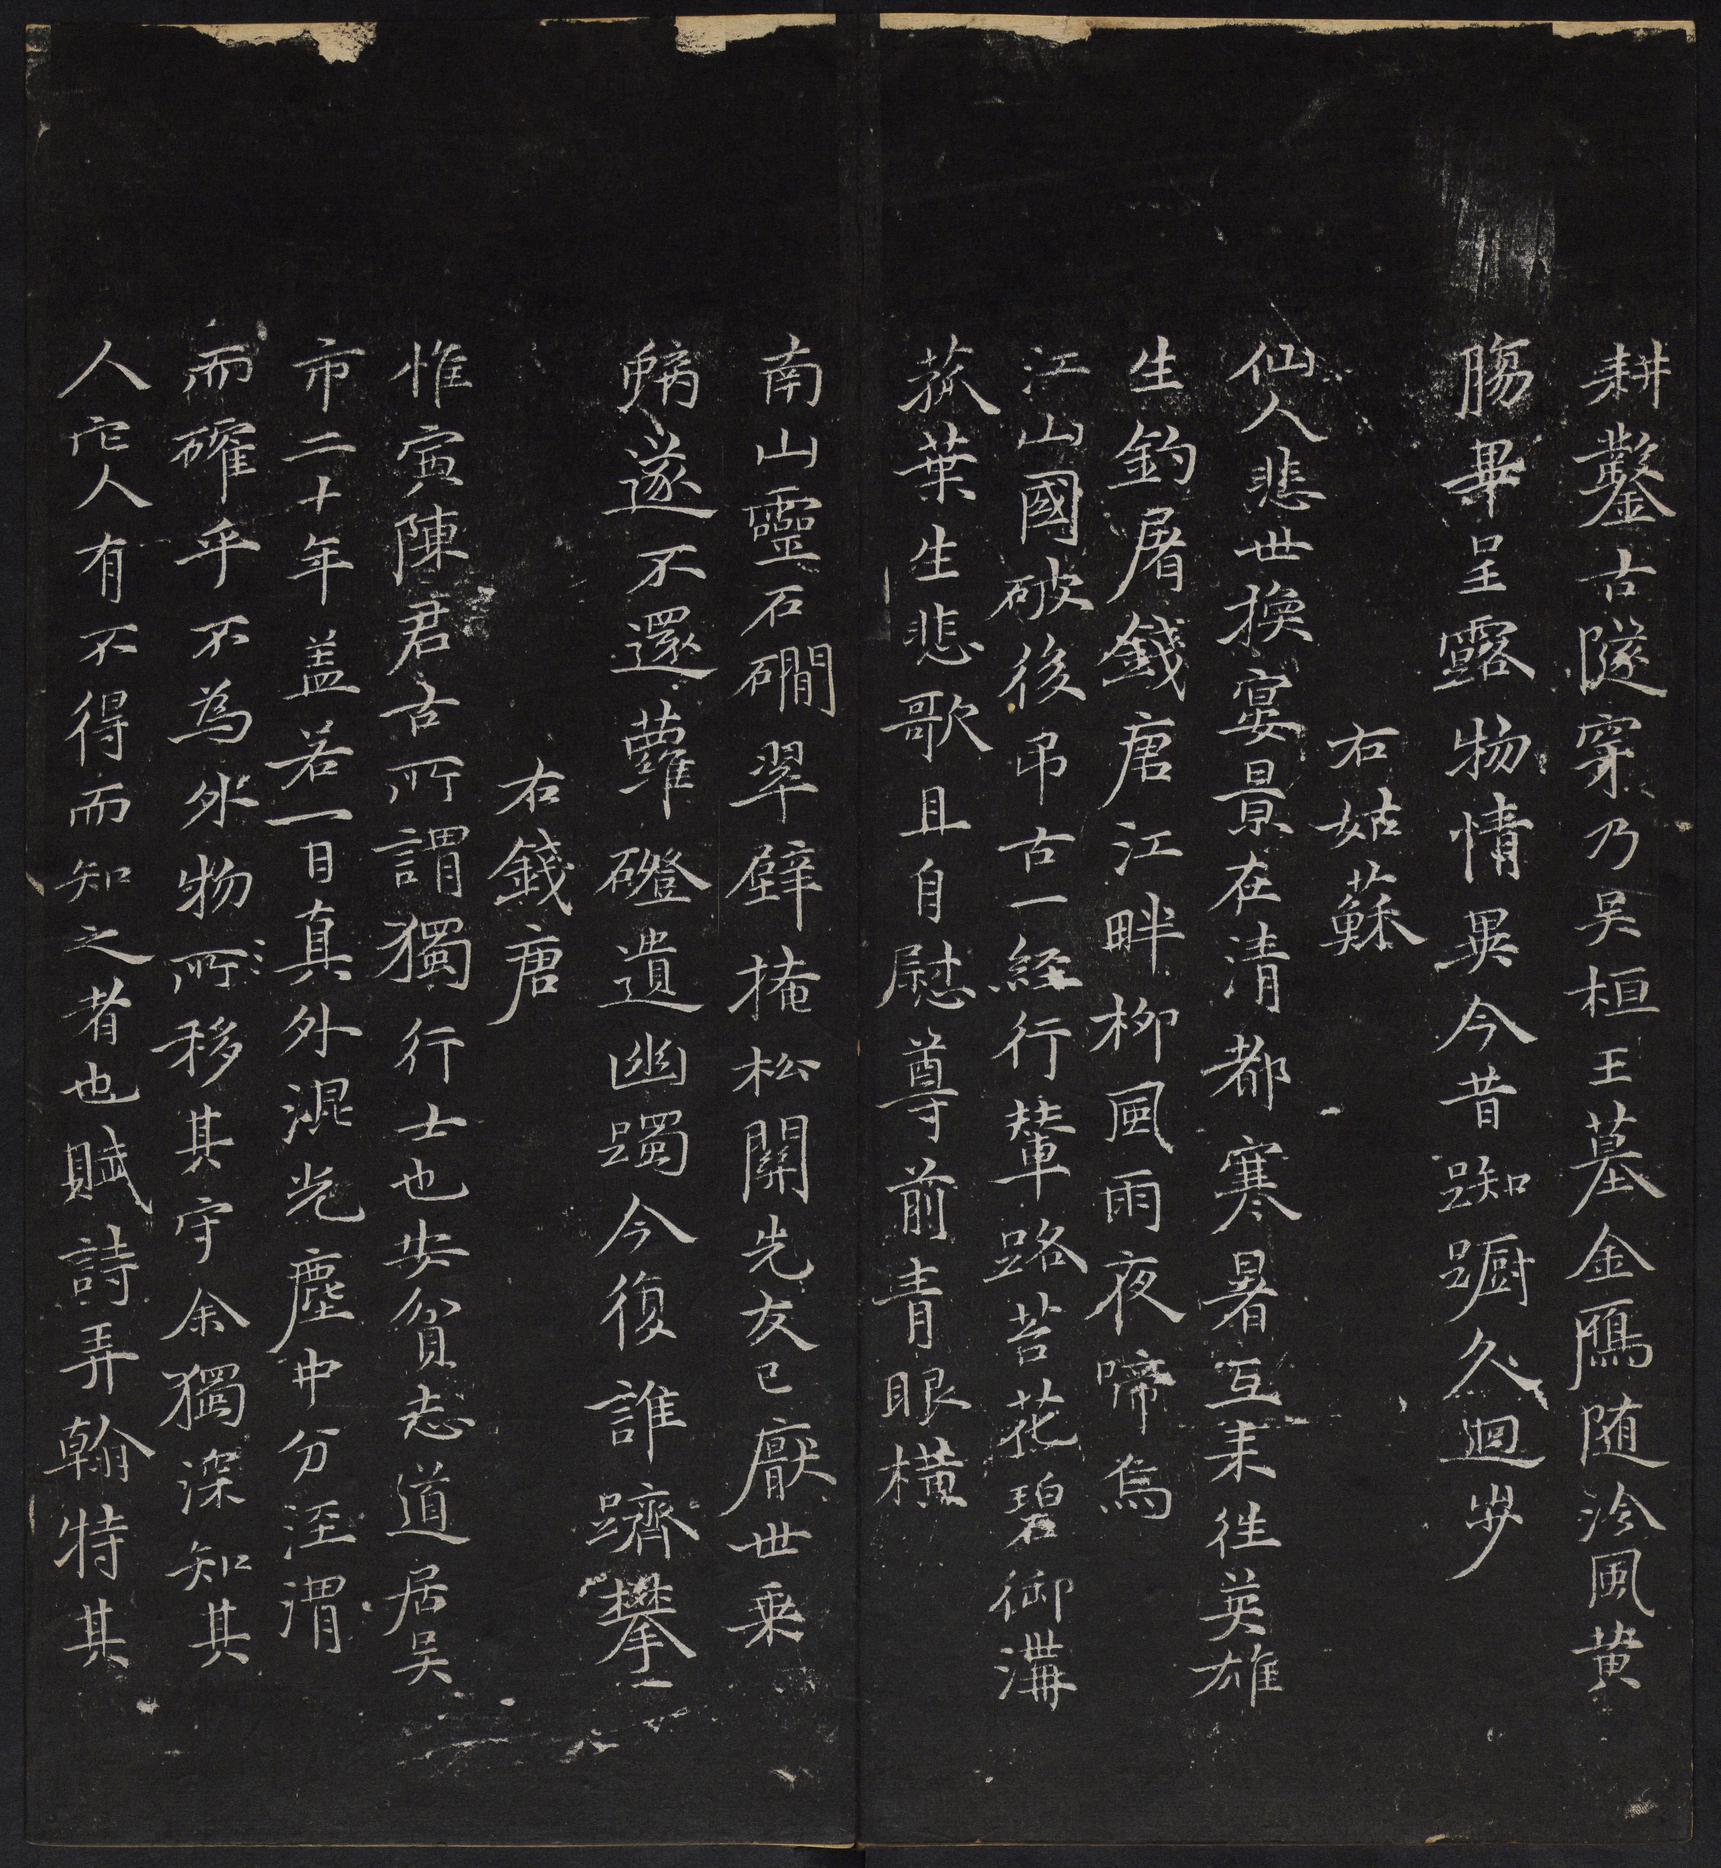 耕鑿古隧穿乃吳桓王墓金鴈随泠風黃
膓畢呈露物情異今昔踟蹰久迴步
右姑蘇
仙人悲世換宴景在清都寒暑互来徃英雄
生釣屠錢唐江畔柳風雨夜啼烏
江山國破後弔古一經行輦路苔花碧御溝
菰葉生悲歌且自慰尊前青眼橫
南山靈石磵翠壁掩松關先友已厭世乗
鸞遂不還蘿磴遺幽躅今復誰躋攀
右錢唐
惟寅陳君古所謂獨行士也安貧志道居吳
市二十年盖若一日真外混光塵中分涇渭
而確乎不為外物所移其守余獨深知其
人它人有不得而知之者也賦詩弄翰特其